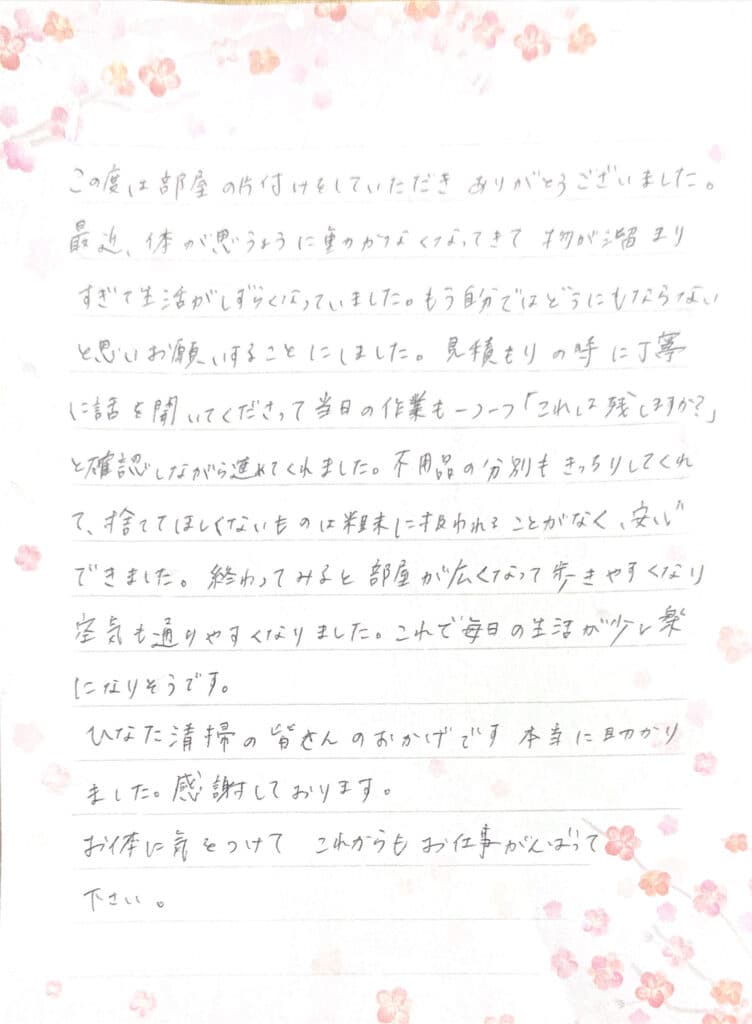 この度は部屋の片付けをしていただき ありがとうございました。
最近、体が思うように動かなくなってきて 物が溜まり
すぎて生活がしずらくなっていました。もう自分ではどうにもならない
と思いお願いすることにしました。見積もりの時に丁寧
に話を聞いてくださって当日の作業も一つ一つ「これは残しますか?」
と確認しながら進めてくれました。不用品の分別もきっちりしてくれ
て、捨ててほしくないものは粗末に扱われることがなく、安心
できました。終わってみると部屋が広くなって歩きやすくなり
空気も通りやすくなりました。これで毎日の生活が少し楽
になりそうです。
ひなた清掃の皆さんのおかげです 本当に助かり
ました。感謝しております。
お体に気をつけて これからもお仕事がんばって
下さい。